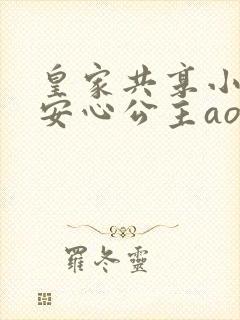 皇家共享小
安心公主ao
羅冬靈